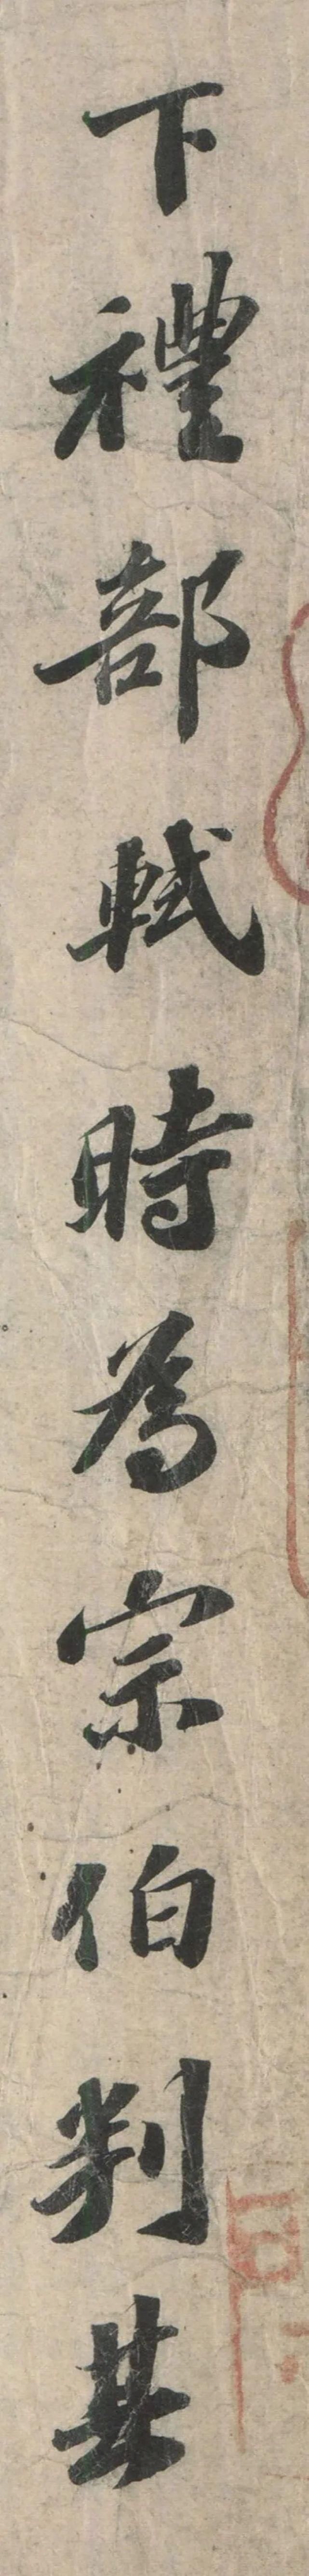 下禮部軾時為宗伯判其